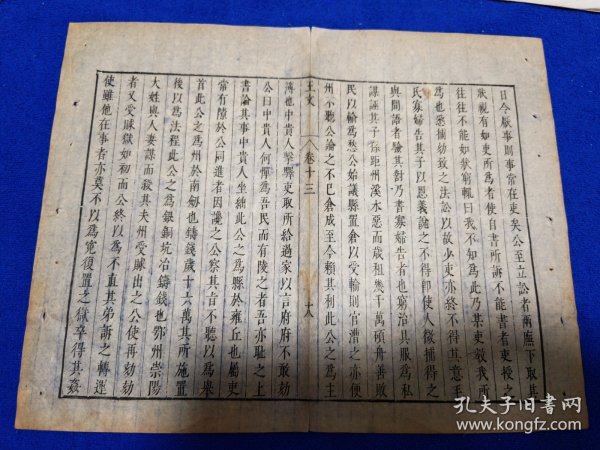 日今獄事則事常在吏矣公至立訟者兩廡下取其
狀視有如吏所為者使自書所訴不能書者吏授之
往往不能如狀窮輒曰我不知為此乃某吏教我所
為也悉捕劾致之法訟以故少吏亦終不得其意毛
氏寡婦告其子以恩義說之不得即使人微捕得之
與間語者驗其對乃書寡婦告者也窮治具服為私
謀誣其子孫距州溪水惡而歲租幾千萬碩舟善敗
民以輸為愁公始議縣置倉以受輸則官漕之亦便
州不聽公論之不已倉成至今賴其利此公之為主
王文
卷十三
十八
簿也中貴人擊驛吏取所給過家以言府府不敢劾
公曰中貴人何憚為吾民而有陵之者吾亦恥之上
書論其事中貴人坐絀此公之為縣於雍丘也屬吏
常有隙於公同進者因讒之公察其旨不聽以為舉
首此公之為州於南劍也鑄錢歲十六萬其所施置
後以為法程此公之為銀銅坑冶鑄錢也鄂州崇陽
大姓與人妻謀而殺其夫州受賕出之公使再劾劾
者又受賕獄如初而公終以為不直其弟訴之轉運
使雖他在事者亦莫不以為冤復置之獄卒得其姦
孔夫子旧书网
www.kongfz.com